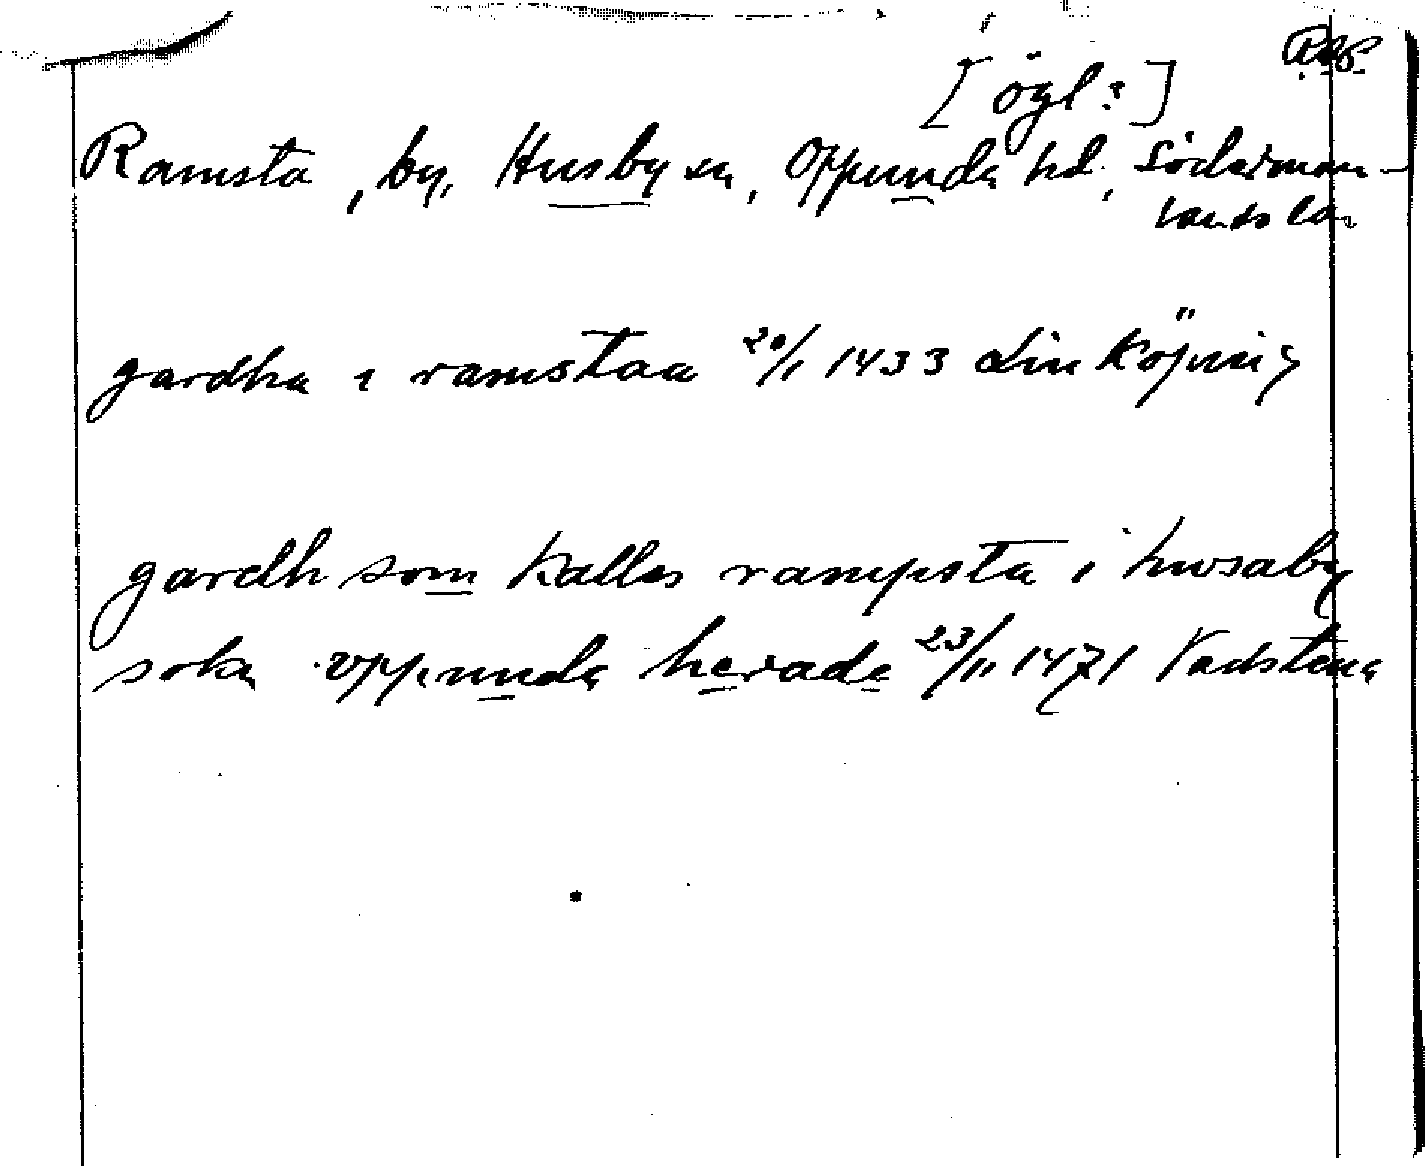 [ögl?]
Ramsta, by, Husby sn, Oppunda hd, Söderman-
lands län
gardha i ramstaa 20/1 1433 Linköping
gardh som kallas rampsta i hwsaby
sokn oppunda herade 23/11 1471 Vadstena